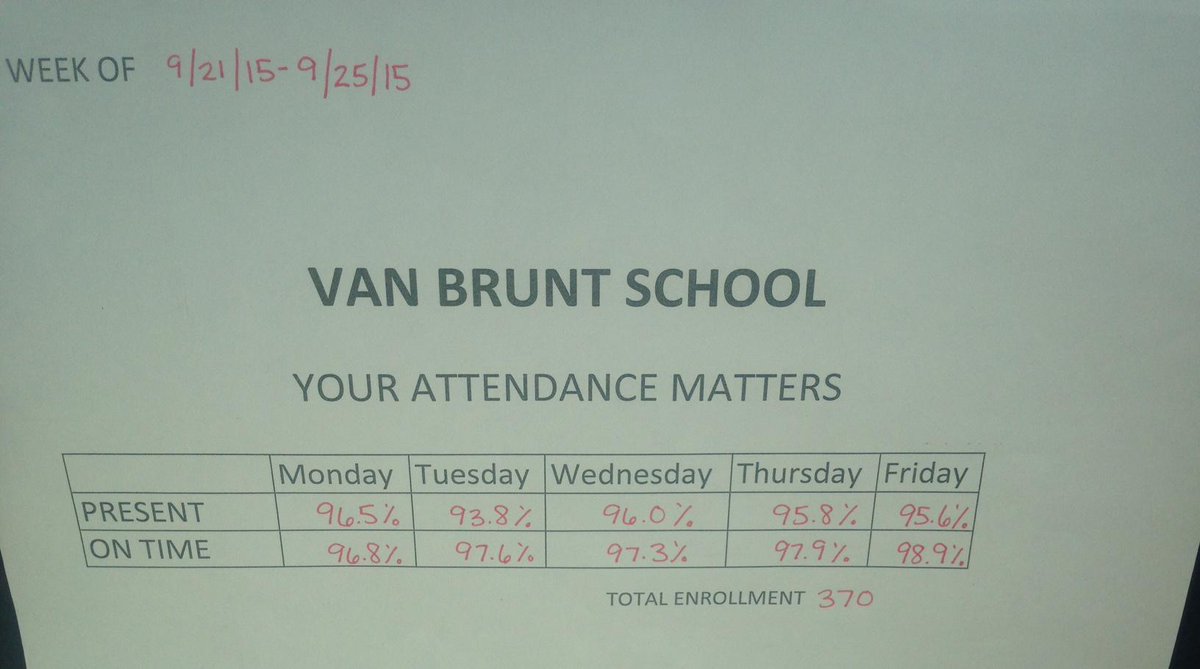 WEEK OF 9/21/15-9/25/15
VAN BRUNT SCHOOL
YOUR ATTENDANCE MATTERS
Monday Tuesday Wednesday Thursday Friday
PRESENT 96.5% 93.8% 96.0% 95.8% 95.6%
ON TIME 96.8% 97.6% 97.3% 97.9% 98.9%
TOTAL ENROLLMENT 370